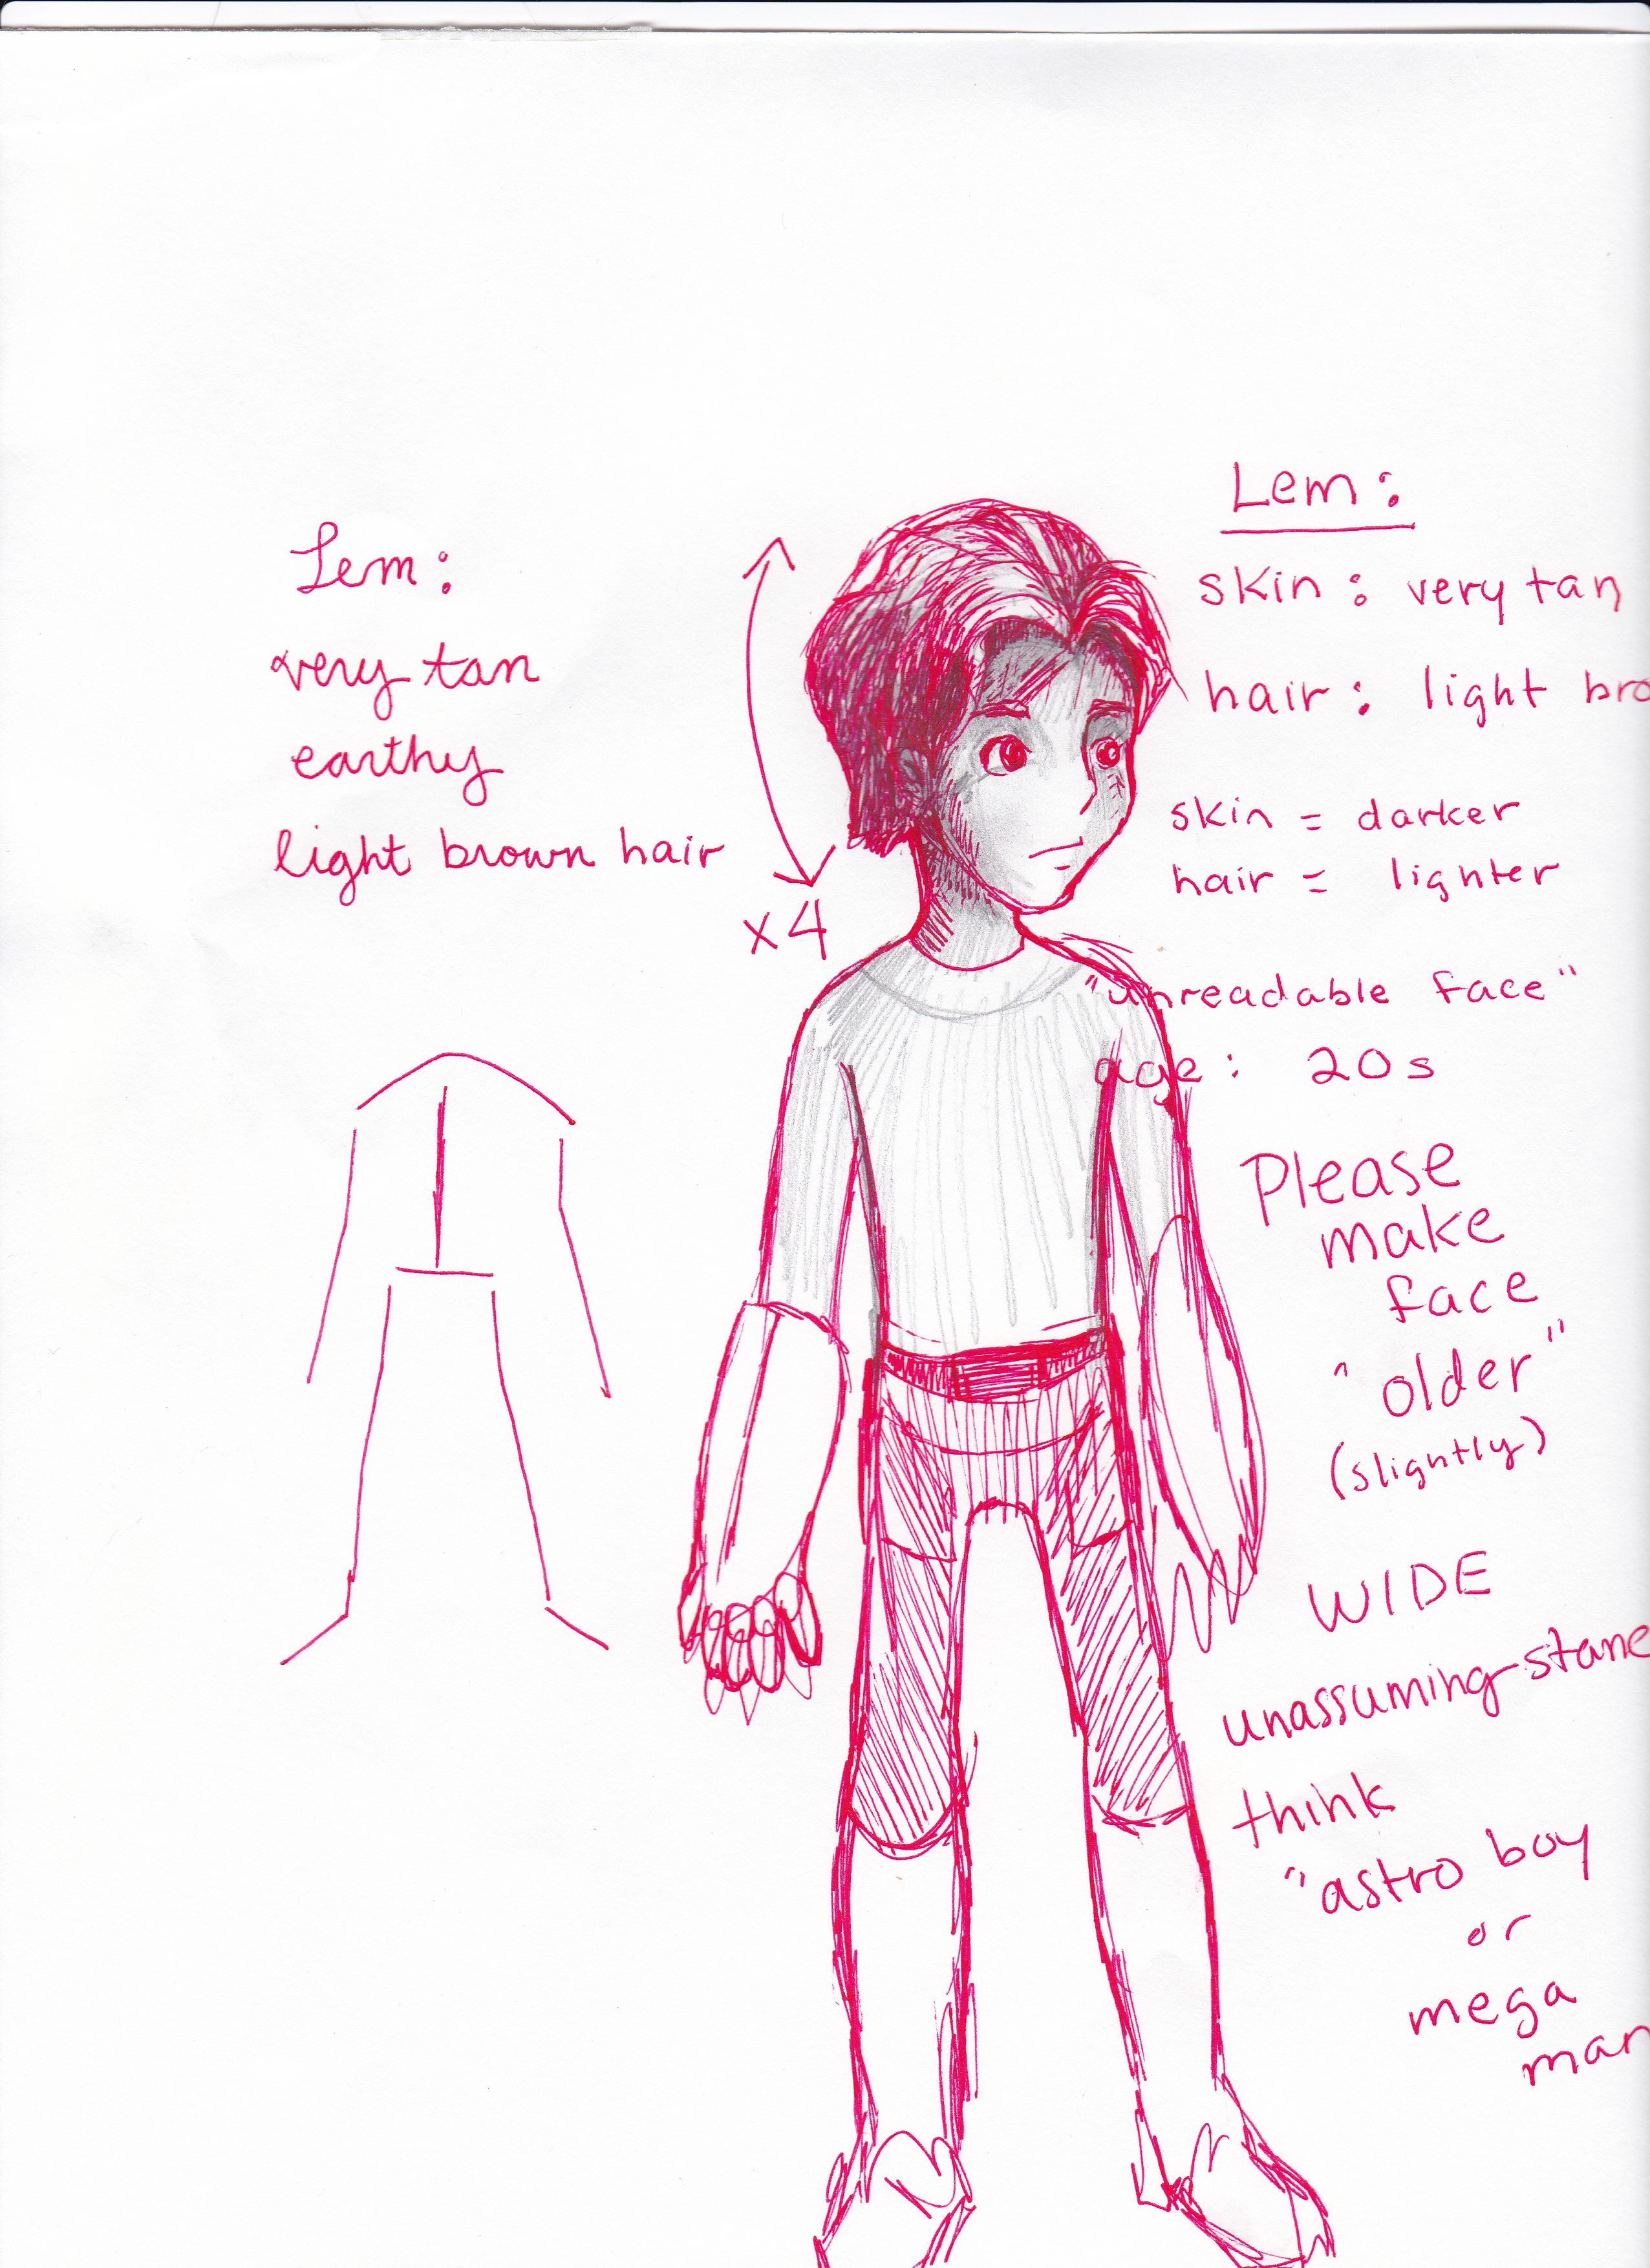 Lem:
very tan
earthy
light brown hair
x4
Lem:
skin: very tan
hair: light bro
skin = darker
hair = lighter
"unreadable face"
age: 20s
Please
make
face
"older"
(slightly)
WIDE
unassuming stane
think
"astro boy
or
mega
man